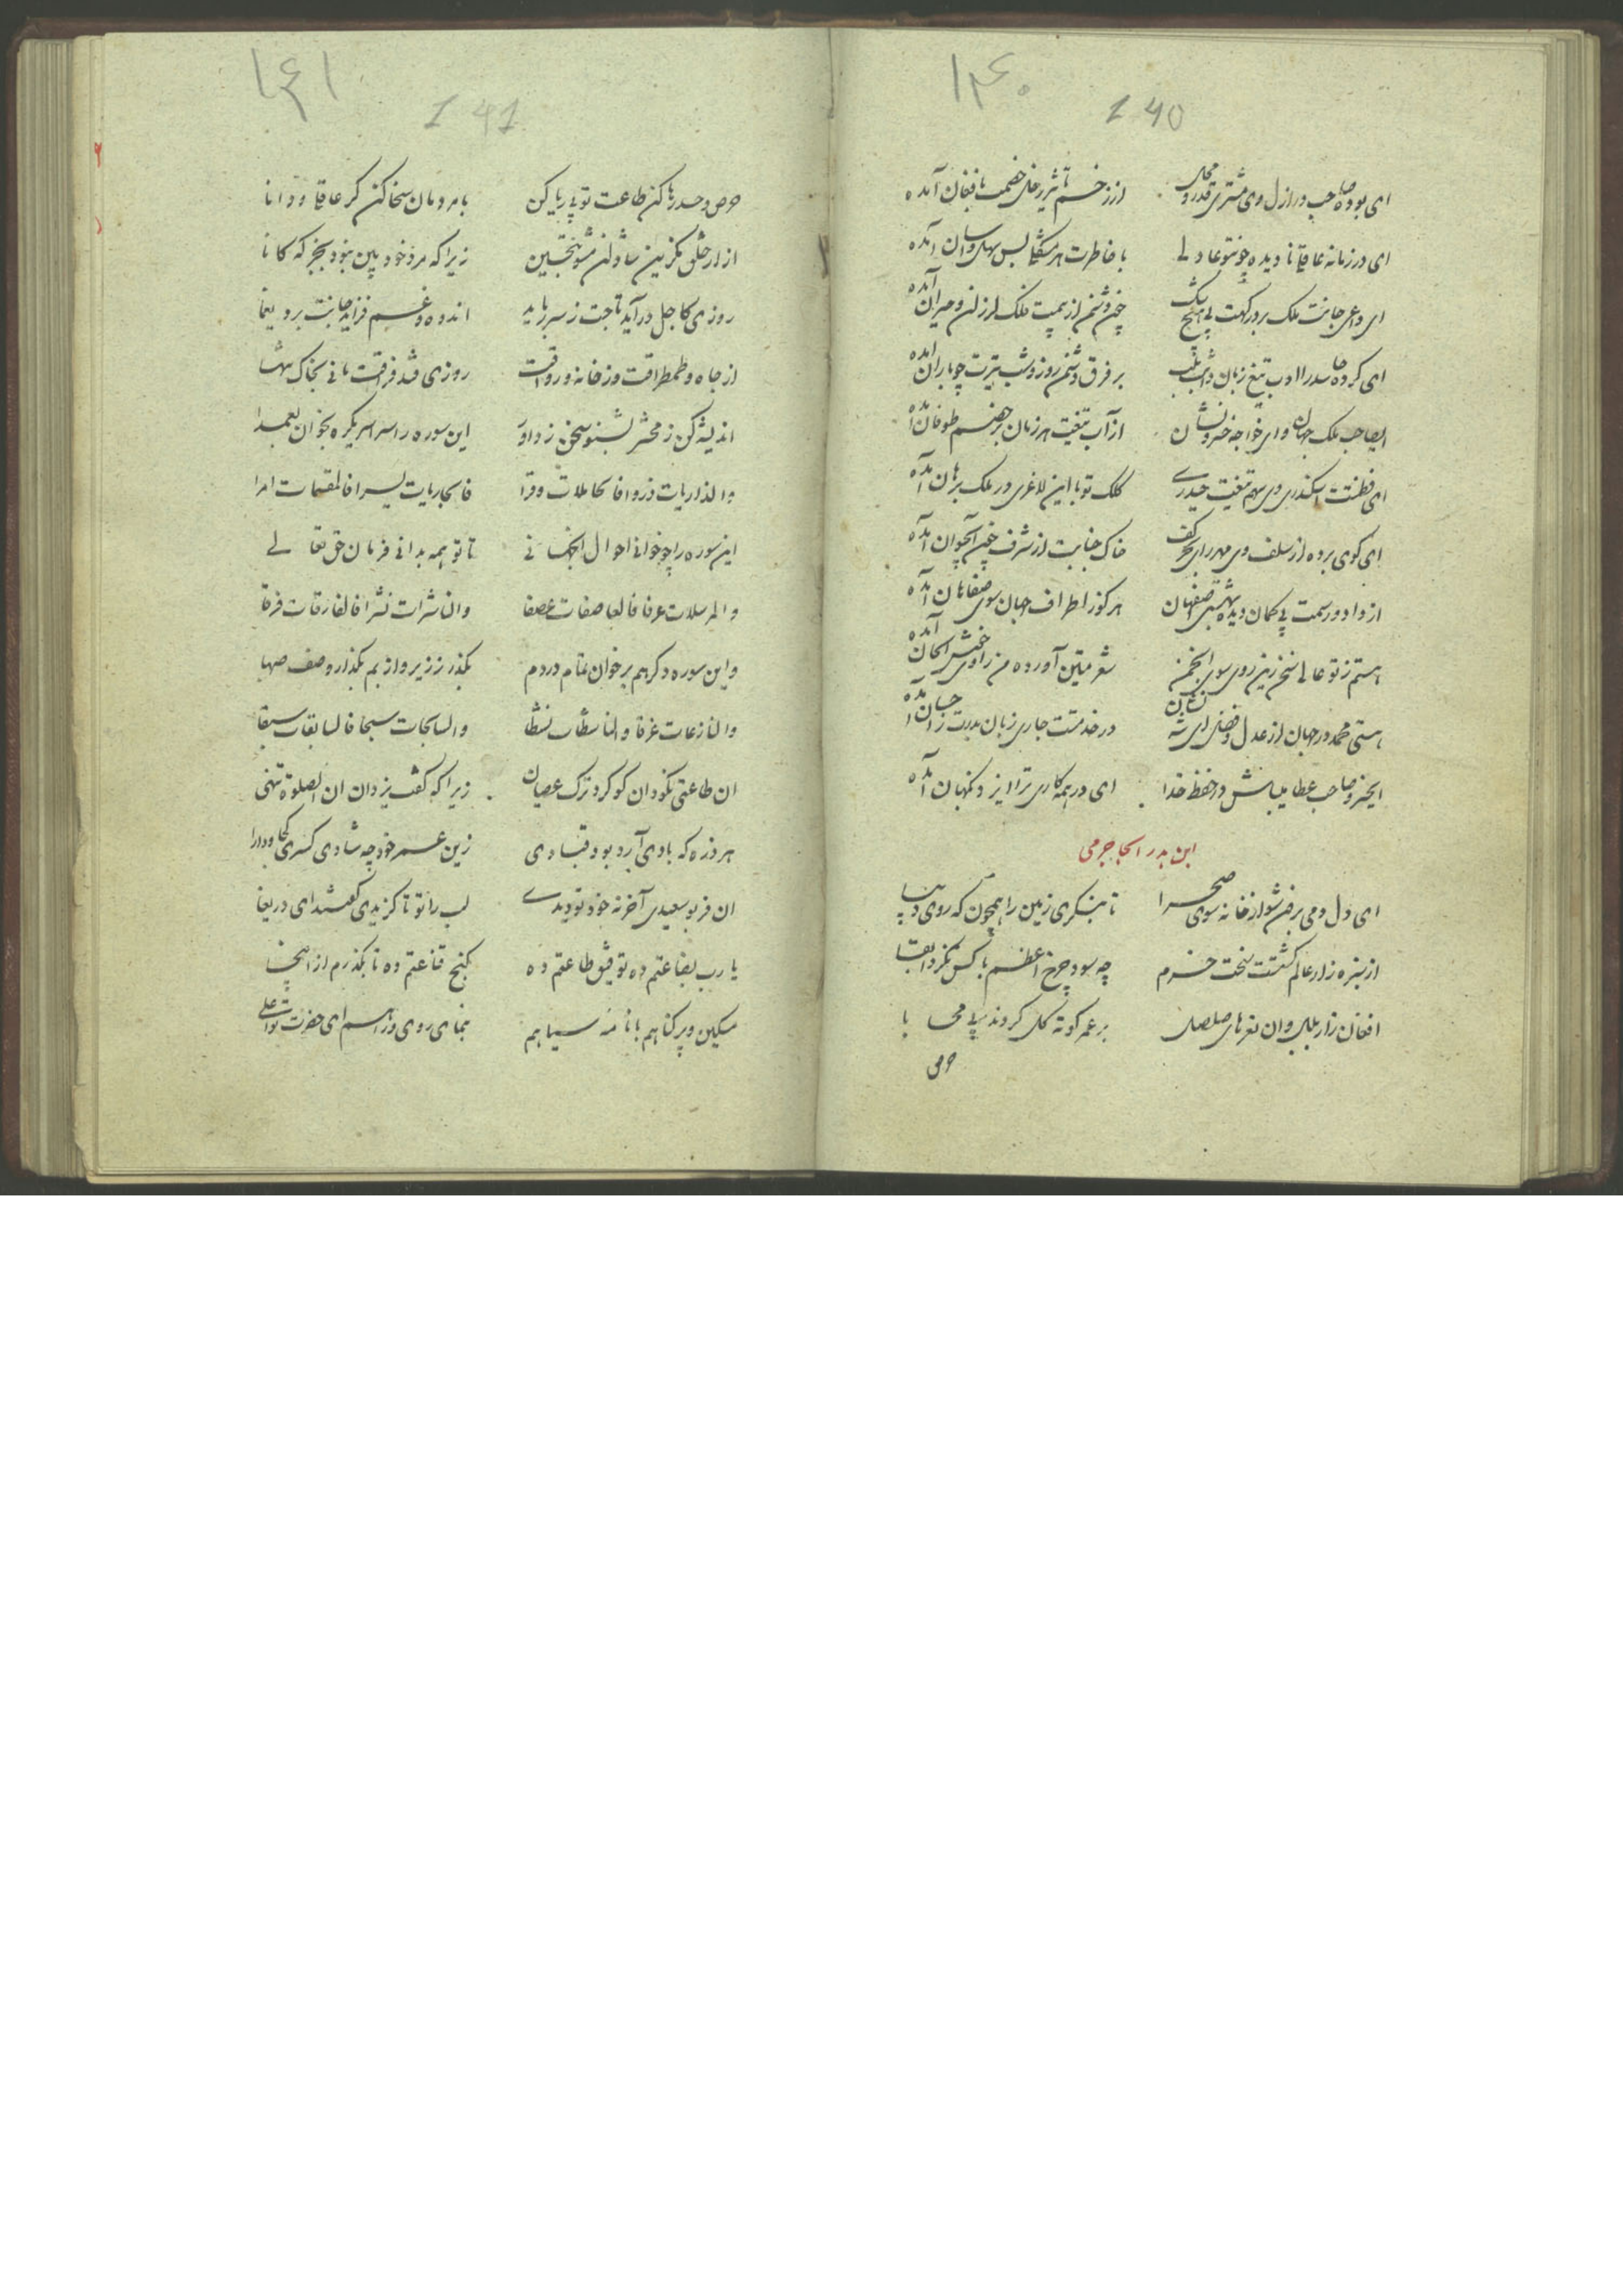 ۱۴۰
140
ای بوده صاحب در ازل وی مشتری قدر و محل از زخم تأثیر زحل خصمت بافغان آمده
ای در زمانه عاقلی نادیده چون تو عادلی با خاطرت هر مشکلی بس سهل و آسان آمده
ای داعی جانت ملک بر درگهت بی هیچ شک چون دشمن از بیمت فلک لرزان و حیران آمده
ای کرده حاسد را ادب تیغ زبان بر فرق دشمن روز و شب تیرت چو باران آمده
ایصاحب ملک جهان وای خواجه خسرو نشان از آب تیغت هر زمان بر خصم طوفان آمده
ای فطنتت اسکندری وی سهم تیغت حیدری کلک تو با این لاغری در ملک برهان آمده
ای گوی برده از سلف وی مهر رای بحر کف خاک جنابت از شرف چون آبحیوان آمده
از داد و رسمت بی گمان دیده بهشتی اصفهان هر کو ز اطراف جهان سوی صفاهان آمده
هستم ز تو عالی سخن زین روی سوی انجمن شعر متین آورده من راوی خوش الحان آمده
هستی محمد در جهان از عدل و فضل در خدمتت جاری زبان بدرت ز آمده
ایخسرو صاحب عطا میباش در حفظ خدا ای در همه کاری ترا ایزد نگهبان آمده
ابن بدر الجاجرمی
ای دل دمی برون شو از خانه سوی صحرا تا بنگری زمین را همچون که روی دیبا
از سبزه زار عالم گشتست سخت خرم چه سود چرخ اعظم با کس نکرد ابقا
افغان زار بلبل وان نغمهای صلصل بر عمر کوته گل کردند بی محابا
حرص
۱۴۱
141
حرص و حسد رها کن طاعت تو بی ریا کن با مردمان سخا کن گر عاقلی و دانا
آزار خلق مگزین شادان مشو بتحسین زیرا که مرد خودبین نبود بجز که کانا
روزی کاجل درآید تاجت ز سر رباید اندوه و غم فزاید جانت برد بیغما
از جاه و طمطراقت وز خانه و رواقت روزی فتد فراقت مانی بخاک تنها
اندیشه کن ز محشر بشنو سخن ز داور این سوره را سراسر یکره بخوان بعمدا
والذاریات ذروا فالحاملات وقرا فالجاریات یسرا فالمقسمات امرا
این سوره را چو خوانی احوال آنجهانی تا تو همه بدانی فرمان حق تعالی
والمرسلات عرفا فالعاصفات عصفا والناشرات نشرا فالفارقات فرقا
واین سوره دگر هم بر خوان تمام در دم بگذر ز زیر و از بم بگذار وصف صهبا
والنازعات غرقا والناشطات نشطا والسابحات سبحا فالسابقات سبقا
ان طاعتی نکو دان کو کرد ترک عصیان زیرا که گفت یزدان ان الصلوة تنهی
هر ذره که بادی آرد بود قبادی زین عمر خود چه شادی کسری کجا و دارا
ان فر بوسعیدی آخر نه خود تو دیدی لب را تو تا گزیدی گفتند ای دریغا
یا رب بضاعتم ده توفیق طاعتم ده گنج قناعتم ده تا بگذرم از اینجا
مسکین و پر گناهم با نامه سیاهم بنمای روی و راهم ای حضرت تو اعلی